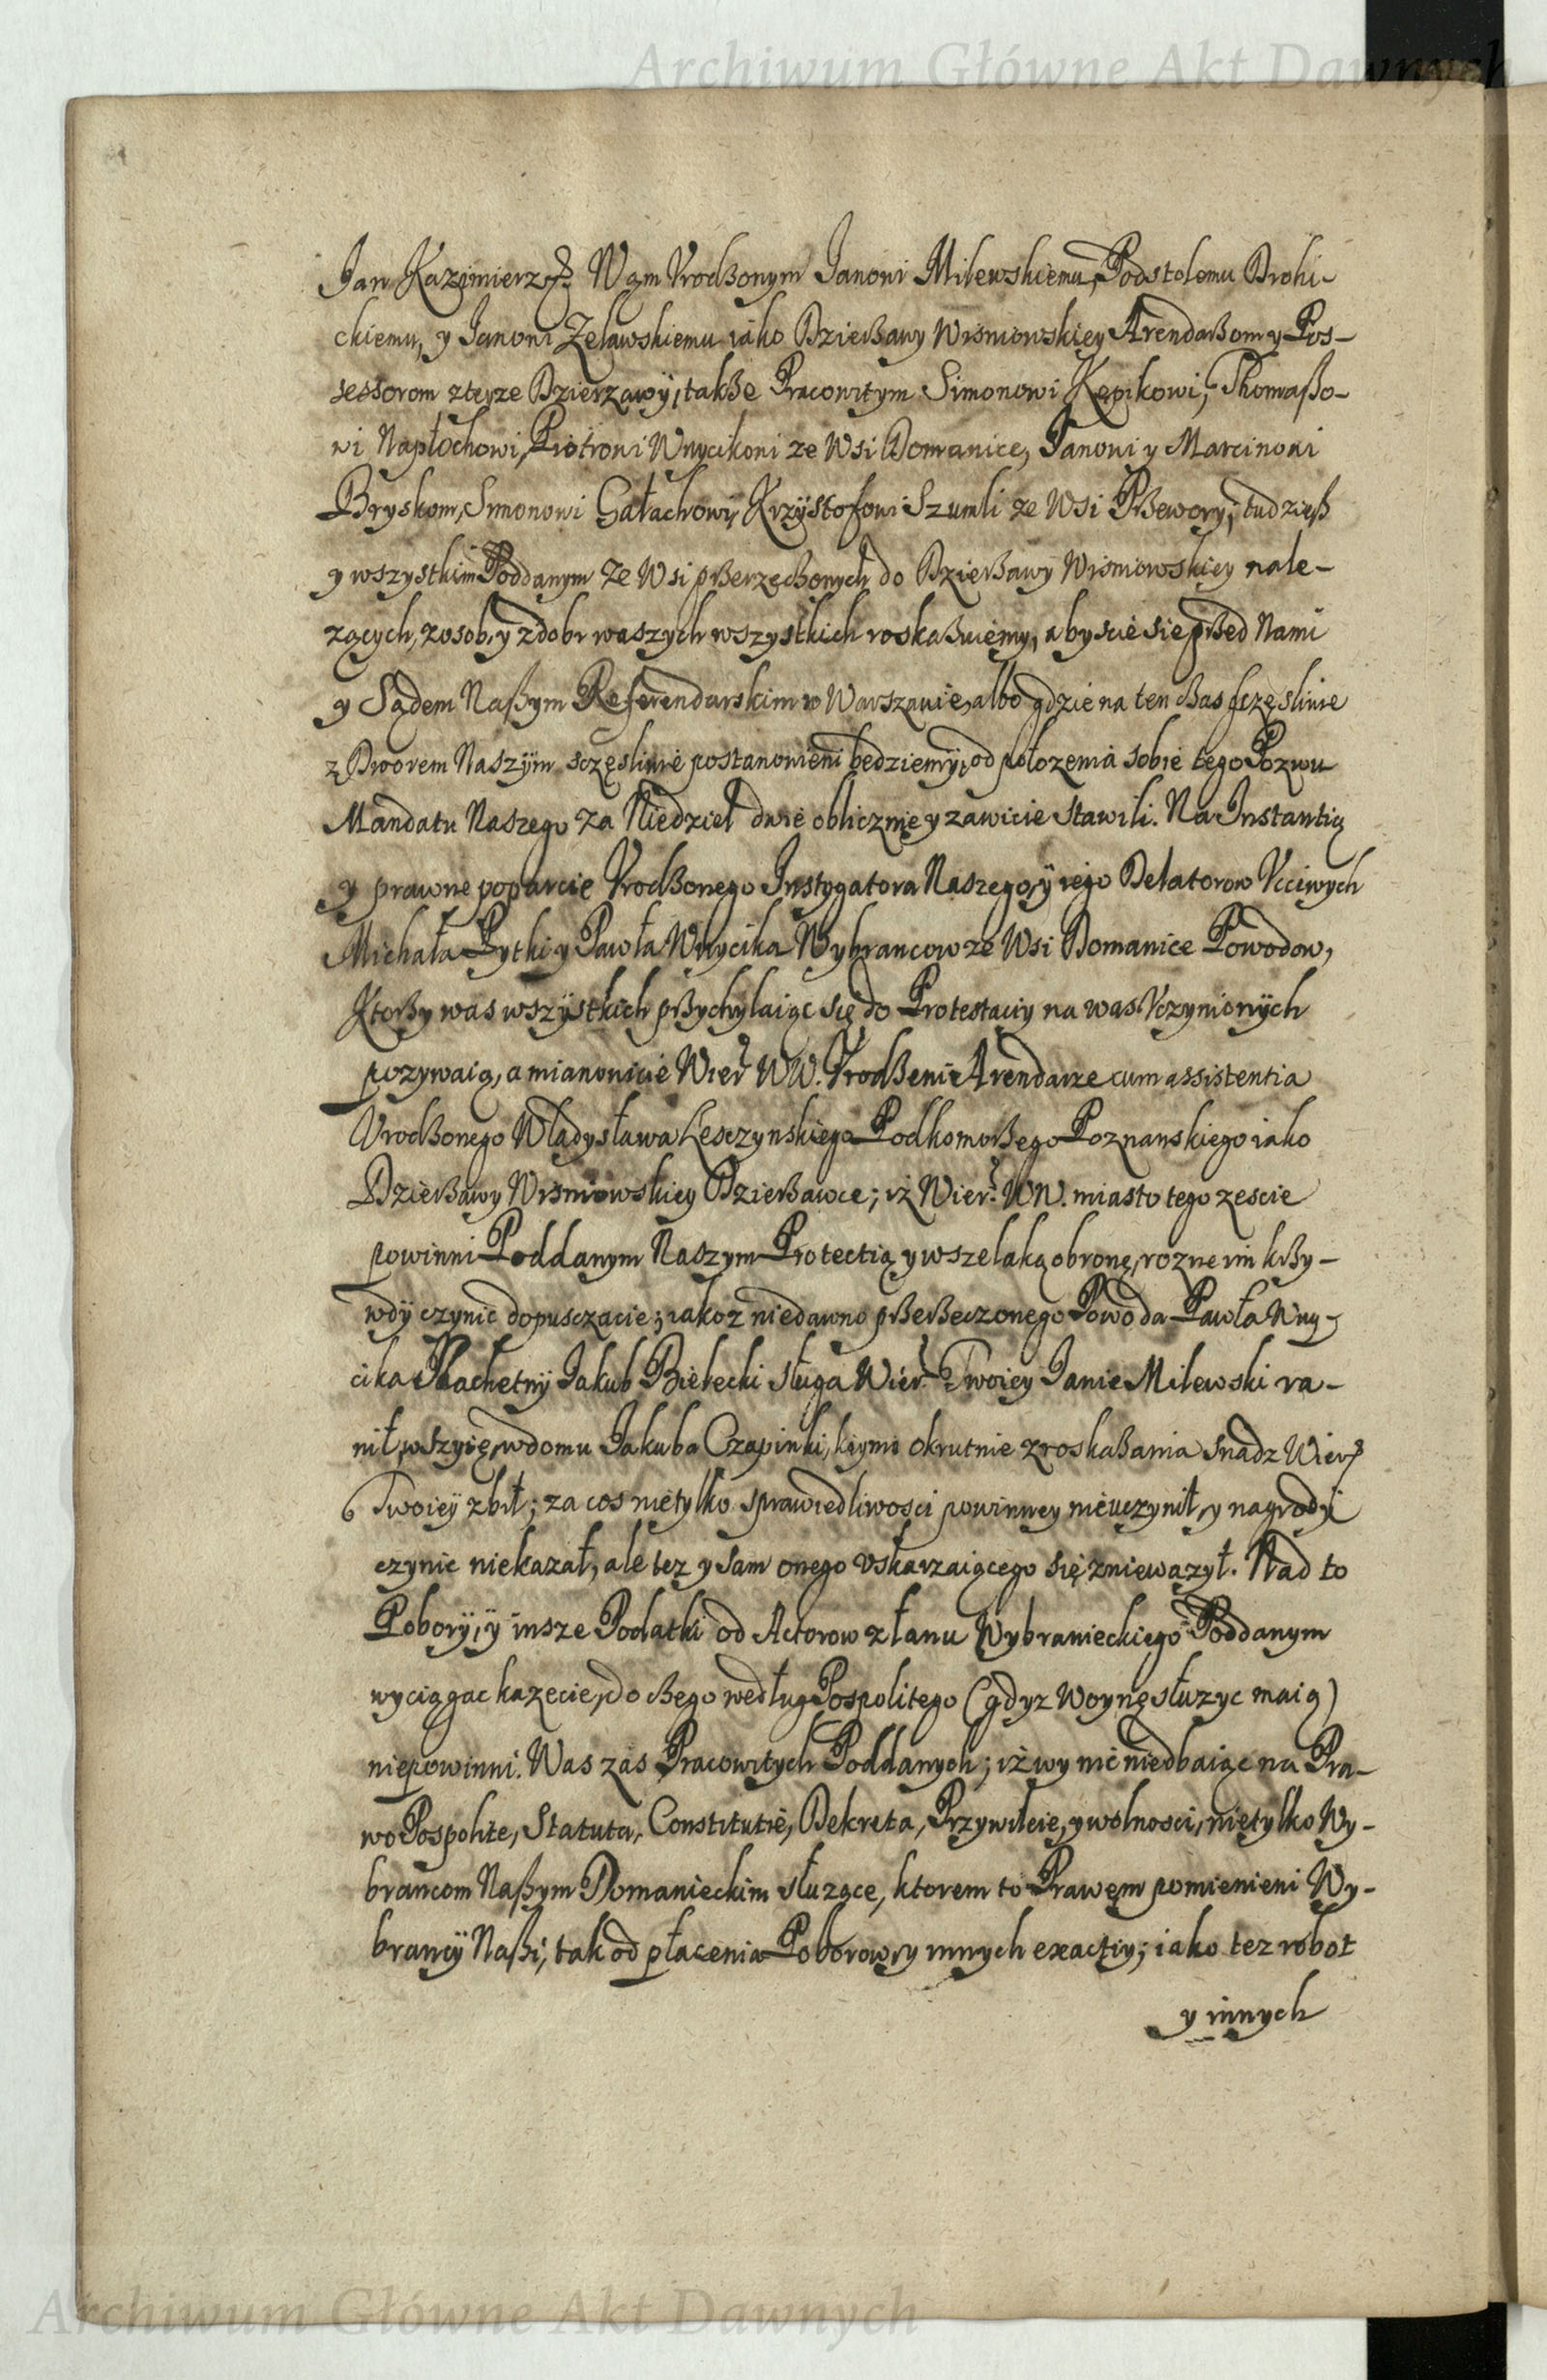 Archiwum Główne Akt Dawnych
Jan Kazimierz etc. Wam Vrodzonym Janowi Milewskiemu, Podstolemu Drohi-
ckiemu, y Janowi Zelawskiemu iako Dzierżawy Wisniowskiey Arendarzom y Pos-
sessorom zteyze Dzierzawy, takze Pracowitym Simonowi Kępikowi, Thomaszo-
wi Napłochowi, Piotrowi Wnycikowi ze Wsi Domanice, Janowi y Marcinowi
Bryskom, Simonowi Gałachowi, Krzysztofowi Szumli ze Wsi Przewory; tudziesz
y wszystkim Poddanym ze Wsi przerzeczonych do Dzierzawy Wisniowskiey nale-
zących, z osob, y z dobr waszych wszystkich roskazuiemy, abyscie sie przed Nami
y Sądem Naszym Referendarskim w Warszawie, albo gdzie na ten czas sczęsliwie
z Dworem Naszym sczęsliwie postanowieni będziemy, od połozenia sobie tego Pozwu
Mandatu Naszego za Niedziel dwie oblicznie y zawicie stawili. Na Instantią
y prawne poparcie Vrodzonego Instygatora Naszego, y iego Delatorow Vcciwych
Michała Pytki y Pawła Wnycika Wybrancow ze Wsi Domanice Powodow,
Ktorzy was wszystkich przychylaiąc się do Protestaciy na was Vczynionych
pozywaią, a mianowicie Wier. WW. Vrodzeni Arendarze cum assistentia
Vrodzonego Władysława Lesczynskiego Podkomorzego Poznanskiego iako
Dzierzawy Wisniowskiey Dzierzawce; iż Wier. WW. miasto tego zescie
powinni Poddanym Naszym Protectią y wszelaką obronę, rozne im krzy-
wdy czynic dopusczacie; iakoz niedawno przerzeczonego Powoda Pawła Wny-
cika Slachetny Jakub Bielecki sługa Wier. Twoiey Janie Milewski ra-
nił w szyię, w domu Jakuba Czapinki, kiymi okrutnie z roskazania snadz Wier.
Twoiey zbił; za cos nietylko sprawiedliwosci powinney nieuczynił, y nagrody
czynic niekazał, ale tez y sam onego vskarzaiącego się zniewazył. Nad to
Pobory, y insze Podatki od Actorow z łanu Wybranieckiego Poddanym
wyciągac kazecie, do czego według Pospolitego (gdyz Woynę słuzyc maią)
niepowinni. Was zas Pracowitych Poddanych; iż wy nic niedbaiąc na Pra-
wo Pospolite, Statuta, Constitutie, Dekreta, Przywileie, y wolnosci, nietylko Wy-
brancom Naszym Domanieckim słuzące, ktorem to Prawem pomienieni Wy-
brancy Naszi, tak od płacenia Poborow, y innych exactiy; iako tez robot
y innych
Archiwum Główne Akt Dawnych